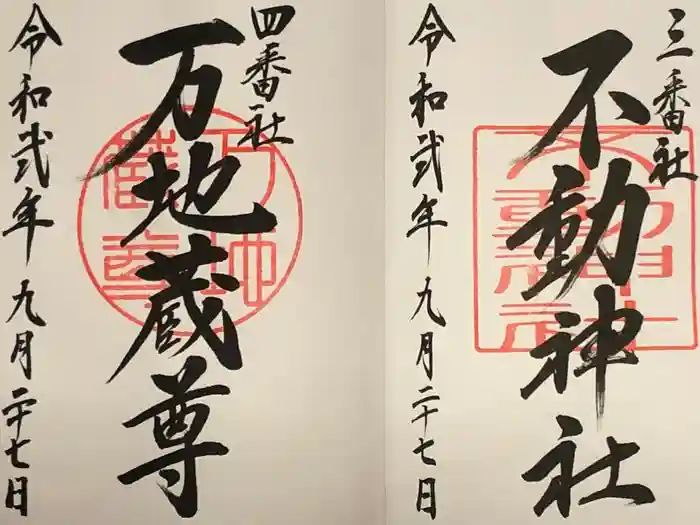 三番社
不動神社
不動神社
令和弐年九月二十七日
四番社
万地蔵尊
万地蔵尊
令和弐年九月二十七日